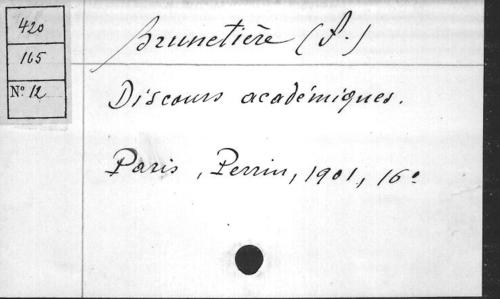 420
165
N° 12
Brunetière (F.)
Discours académiques.
Paris, Perrin, 1901, 16°